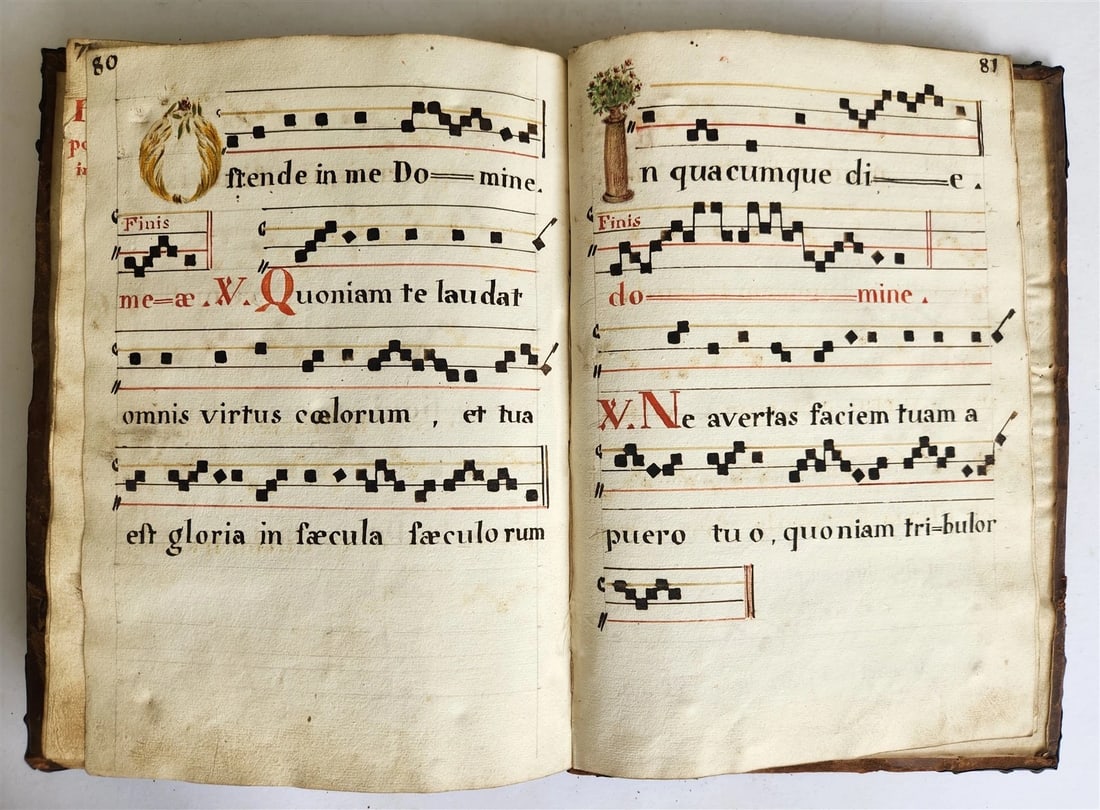 80
Ostende in me Do=mine.
Finis
me=æ. V. Quoniam te laudat
omnis virtus cœlorum , et tua
est gloria in sæcula sæculorum
81
In quacumque di=e.
Finis
do=mine.
V. Ne avertas faciem tuam a
puero tuo, quoniam tri=bulor